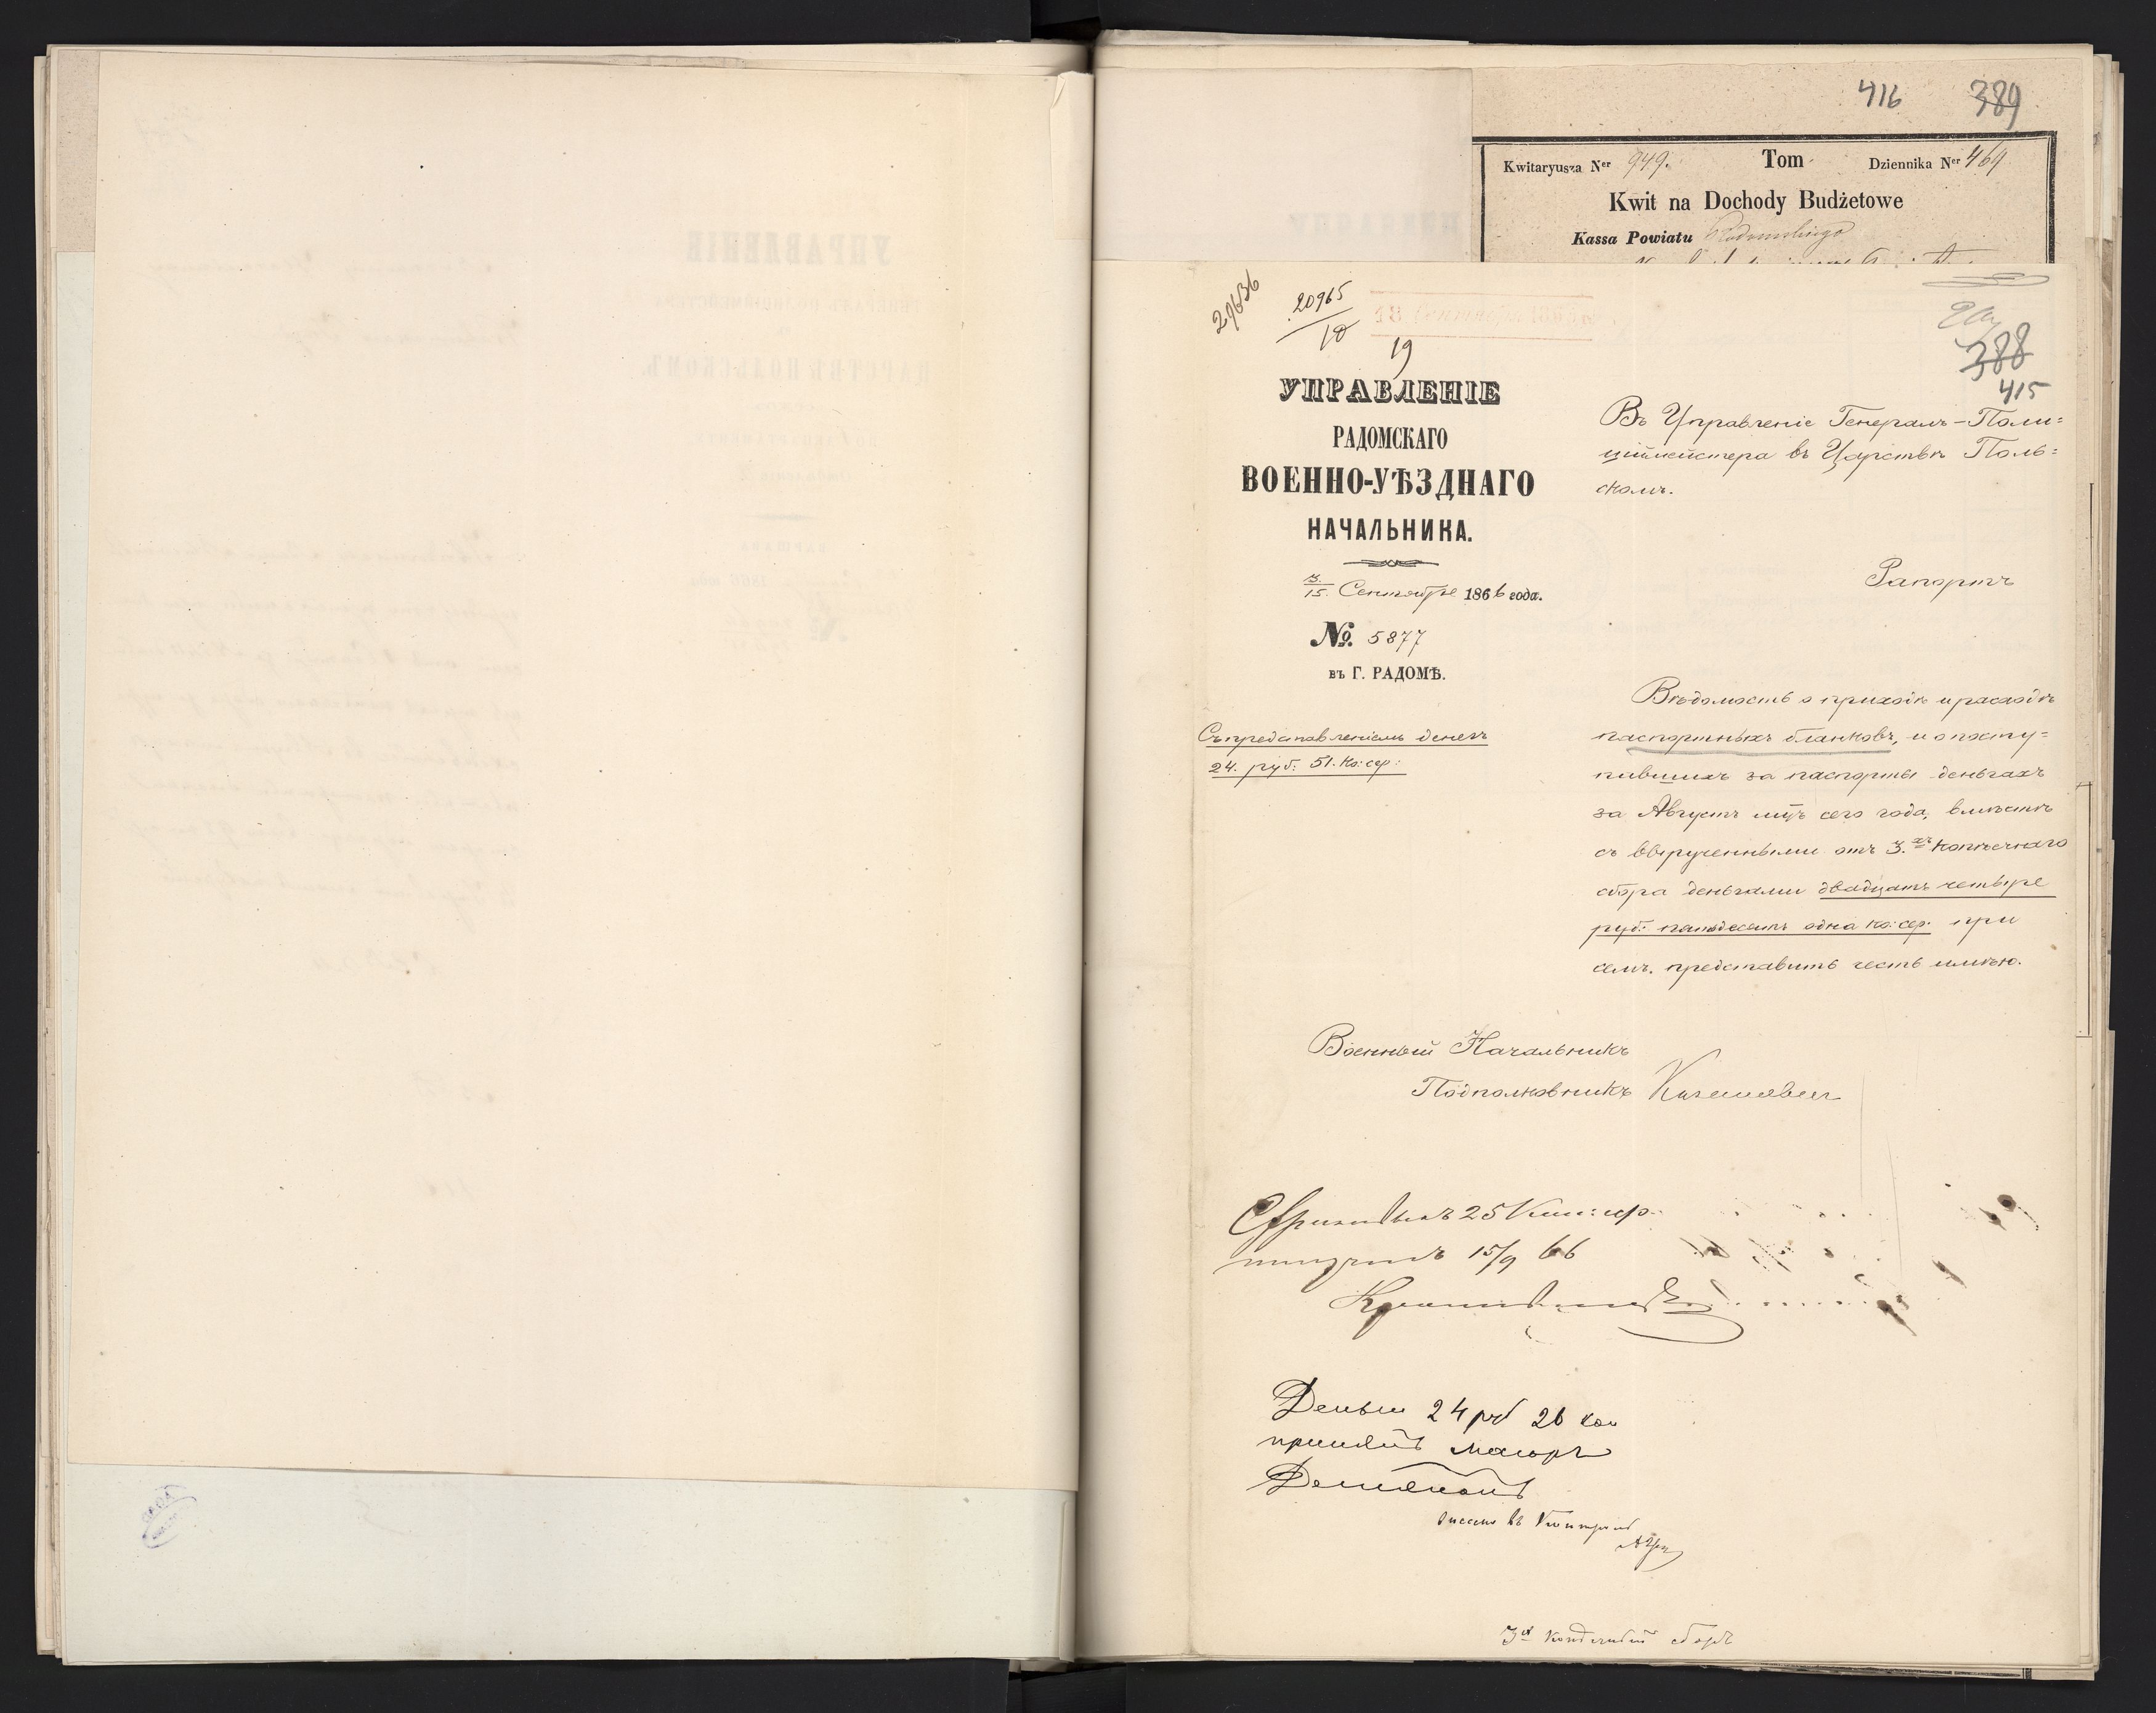 416 389
Kwitaryusza Ner 949. Tom Dziennika Ner 469
Kwit na Dochody Budżetowe
Kassa Powiatu Radomskiego
29636
20965
10
19
18 Сентября
388
415
УПРАВЛЕНІЕ
РАДОМСКАГО
ВОЕННО-УѢЗДНАГО
НАЧАЛЬНИКА.
3/15. Сентября 1866 года.
№. 5877
въ Г. РАДОМѢ.
Съ представленіемъ денегъ
24. руб: 51. ко: сер:
Въ Управленіе Генералъ-Поли=
ціймейстера въ Царствѣ Поль=
скомъ.
Рапортъ
Вѣдомость о приходѣ и расходѣ
паспортныхъ бланковъ, и о посту=
пившихъ за паспорты деньгахъ
за Августъ мц̃ъ сего года, вмѣстѣ
съ вырученными отъ 3.хъ копѣечнаго
сбора деньгами двадцать четыре
руб: пятьдесятъ одна ко: сер: при
семъ представить честь имѣю.
Военный Начальникъ
Подполковникъ
25 коп: сер.
получилъ 15/9 66
Деньги 24 руб 26 коп
принялъ маіоръ
въ Контроль
3х копѣечный сборъ